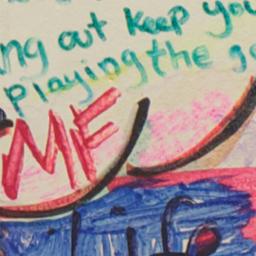 ng out keep you
playing the g
MF
life